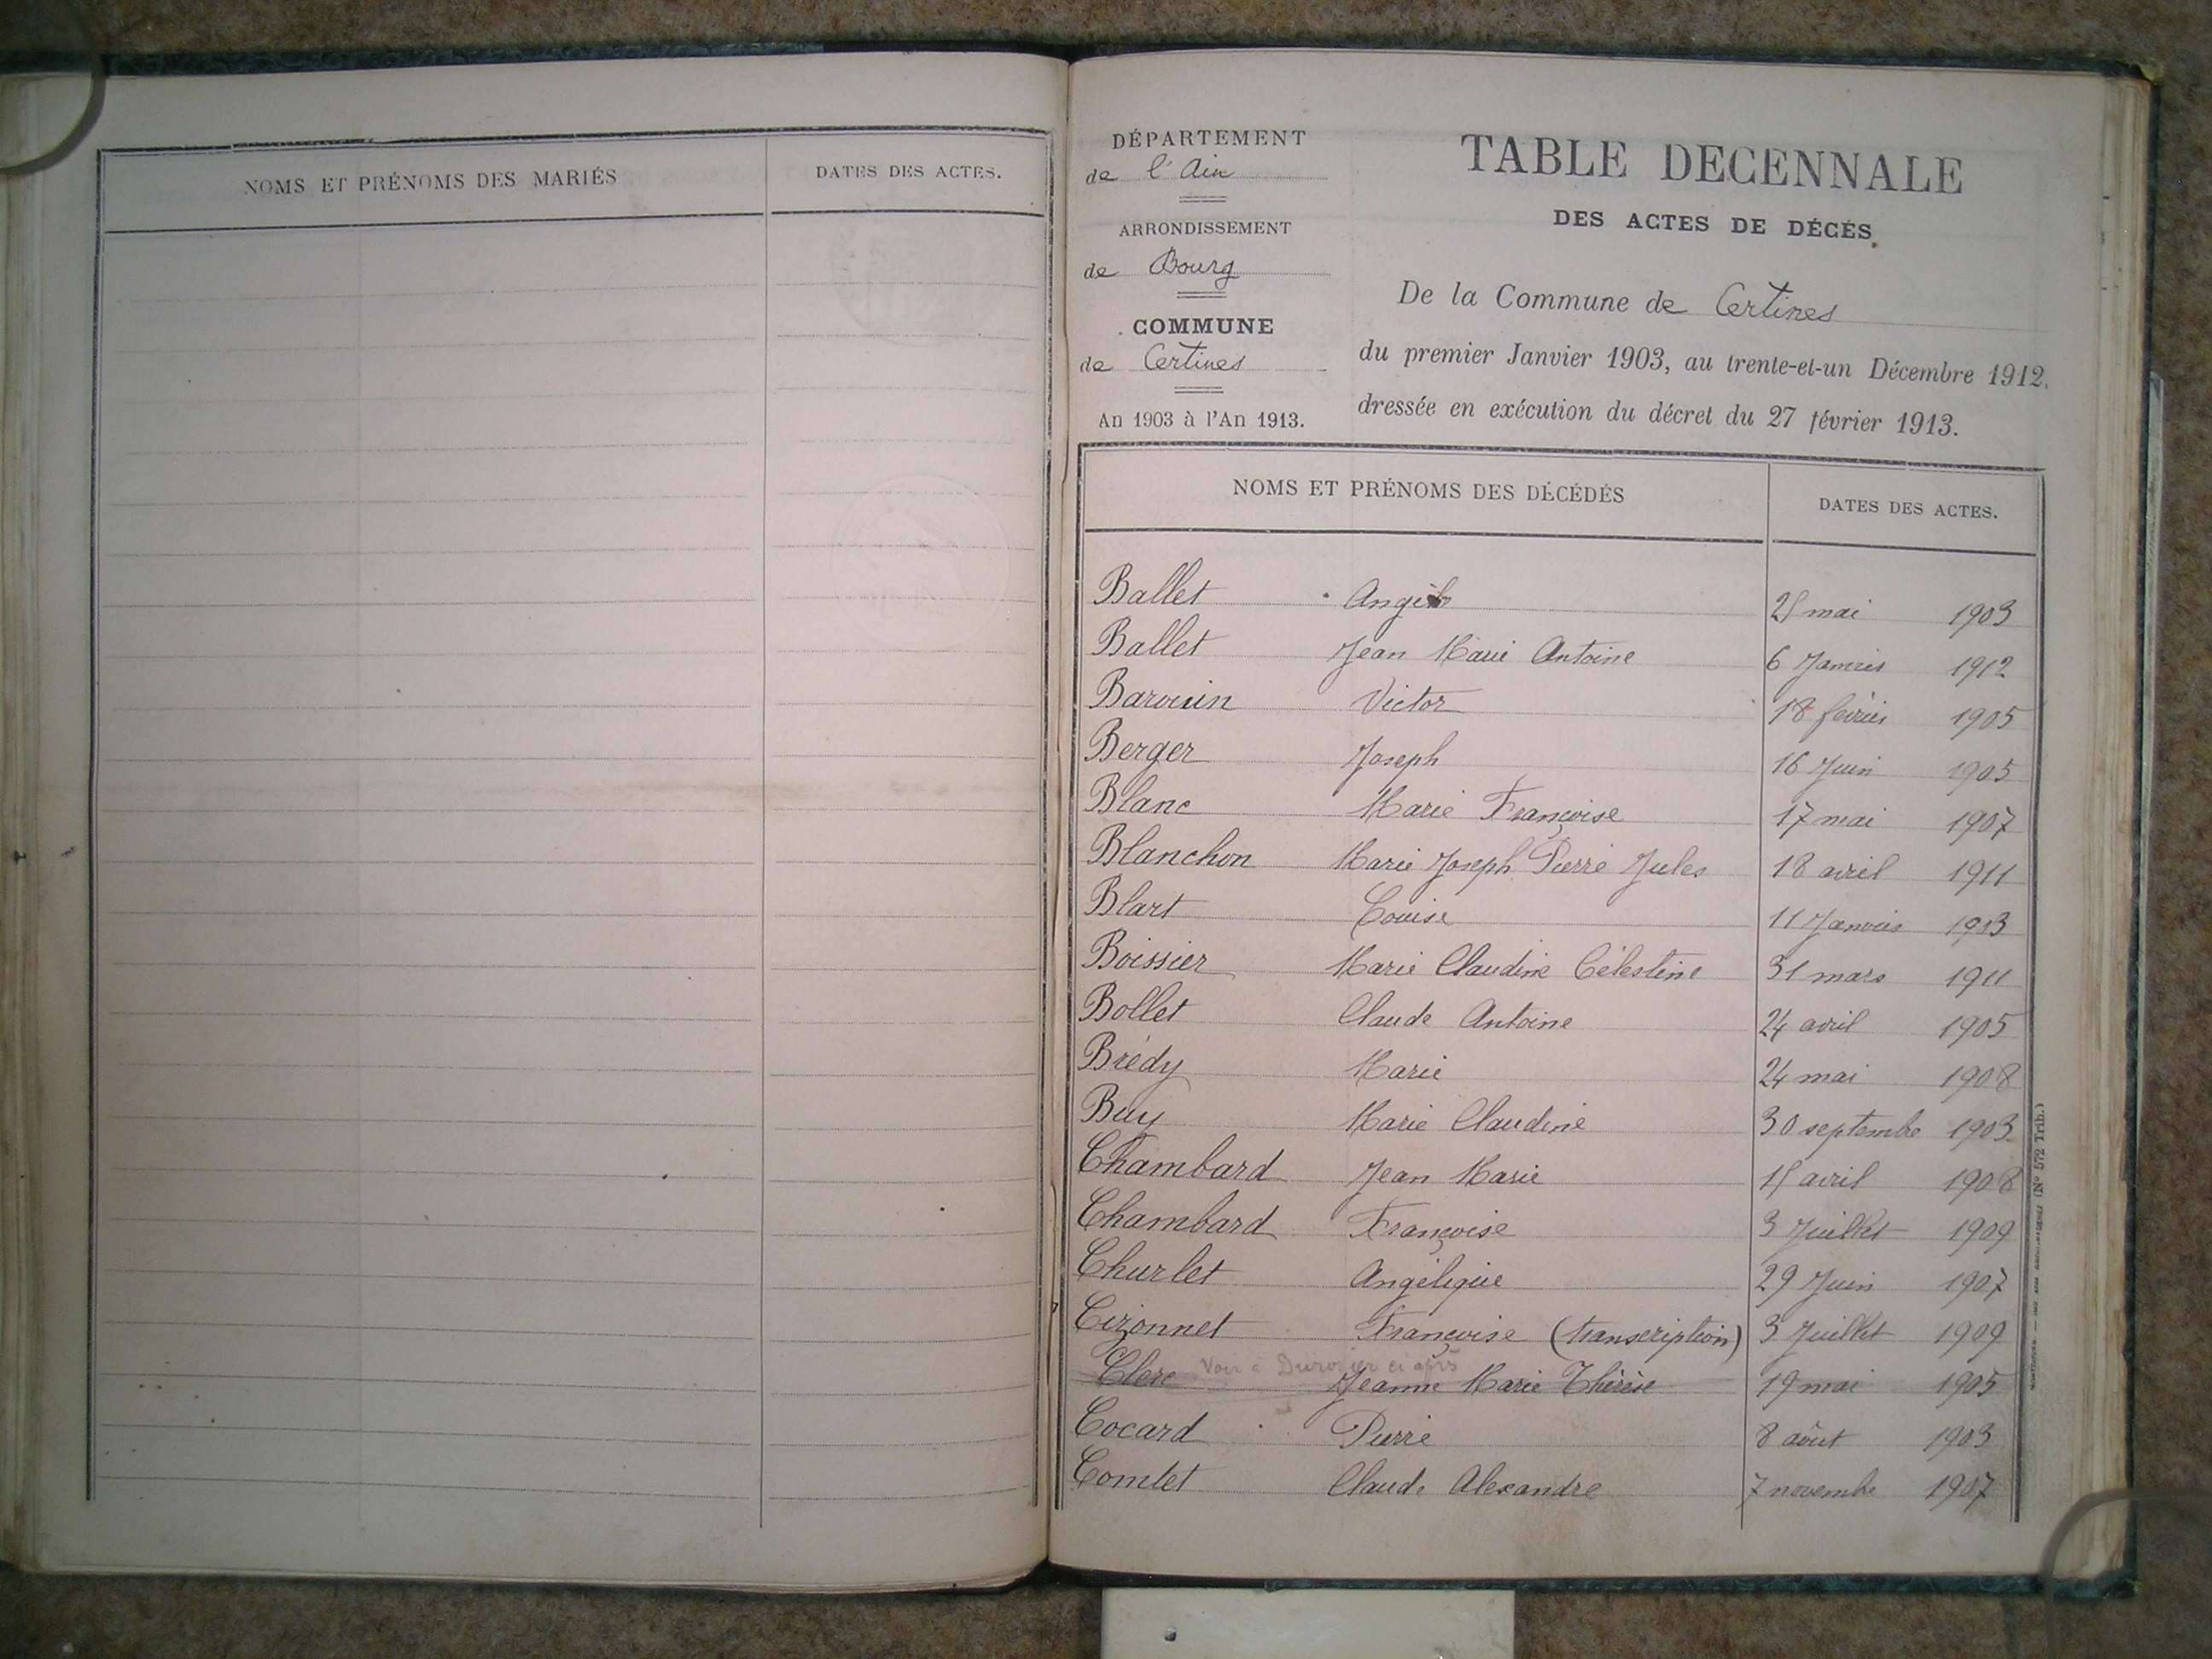 NOMS ET PRÉNOMS DES MARIÉS
DATES DES ACTES.
DÉPARTEMENT
de l'Ain
ARRONDISSEMENT
de Bourg
COMMUNE
de Certines
An 1903 à l'An 1913.
TABLE DECENNALE
DES ACTES DE DÉCÉS.
De la Commune de Certines
du premier Janvier 1903, au trente-et-un Décembre 1912.
dressée en exécution du décret du 27 février 1913.
NOMS ET PRÉNOMS DES DÉCÉDÉS DATES DES ACTES.
Ballet 25 mai 1903
Ballet Jean Marie Antoine 6 Janvier 1912
Victor 18 février 1905
Berger Joseph 16 Juin 1905
Blanc Marie Françoise 17 mai 1907
Blanchon Marie Joseph Pierre Jules 18 avril 1911
Blart Louise 11 Janvier
Boissier Marie Claudine Célestine 31 mars 1911
Bollet Claude Antoine 24 avril 1905
Brédy Marie 24 mai 1908
Buy Marie Claudine 30 septembre 1903
Chambard Jean Marie 15 avril 1908
Chambard Françoise 3 Juillet 1909
Churlet Angélique 29 Juin 1907
Cizonnet Françoise (transcription) 3 Juillet 1909
Voir à ci après
Clerc Jeanne Marie Thérèse 19 mai 1905
Cocard Pierre 8 août 1903
Comtet Claude Alexandre 7 novembre 1907
(Nº 572 Trib.)